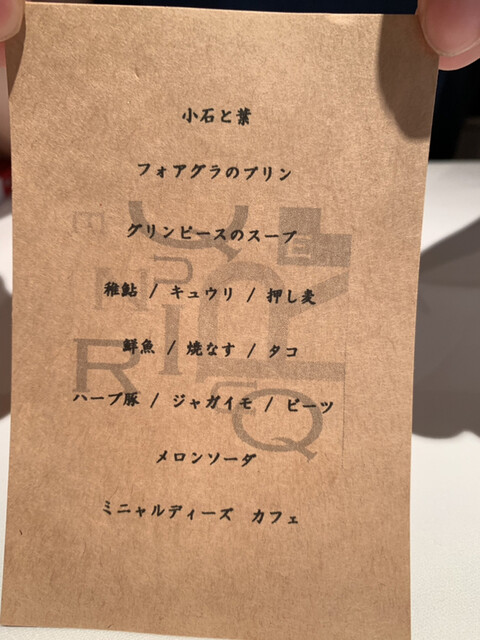 小石と葉
フォアグラのプリン
グリンピースのスープ
稚鮎 / キュウリ / 押し麦
鮮魚 / 焼なす / タコ
ハーブ豚 / ジャガイモ / ビーツ
メロンソーダ
ミニャルディーズ カフェ